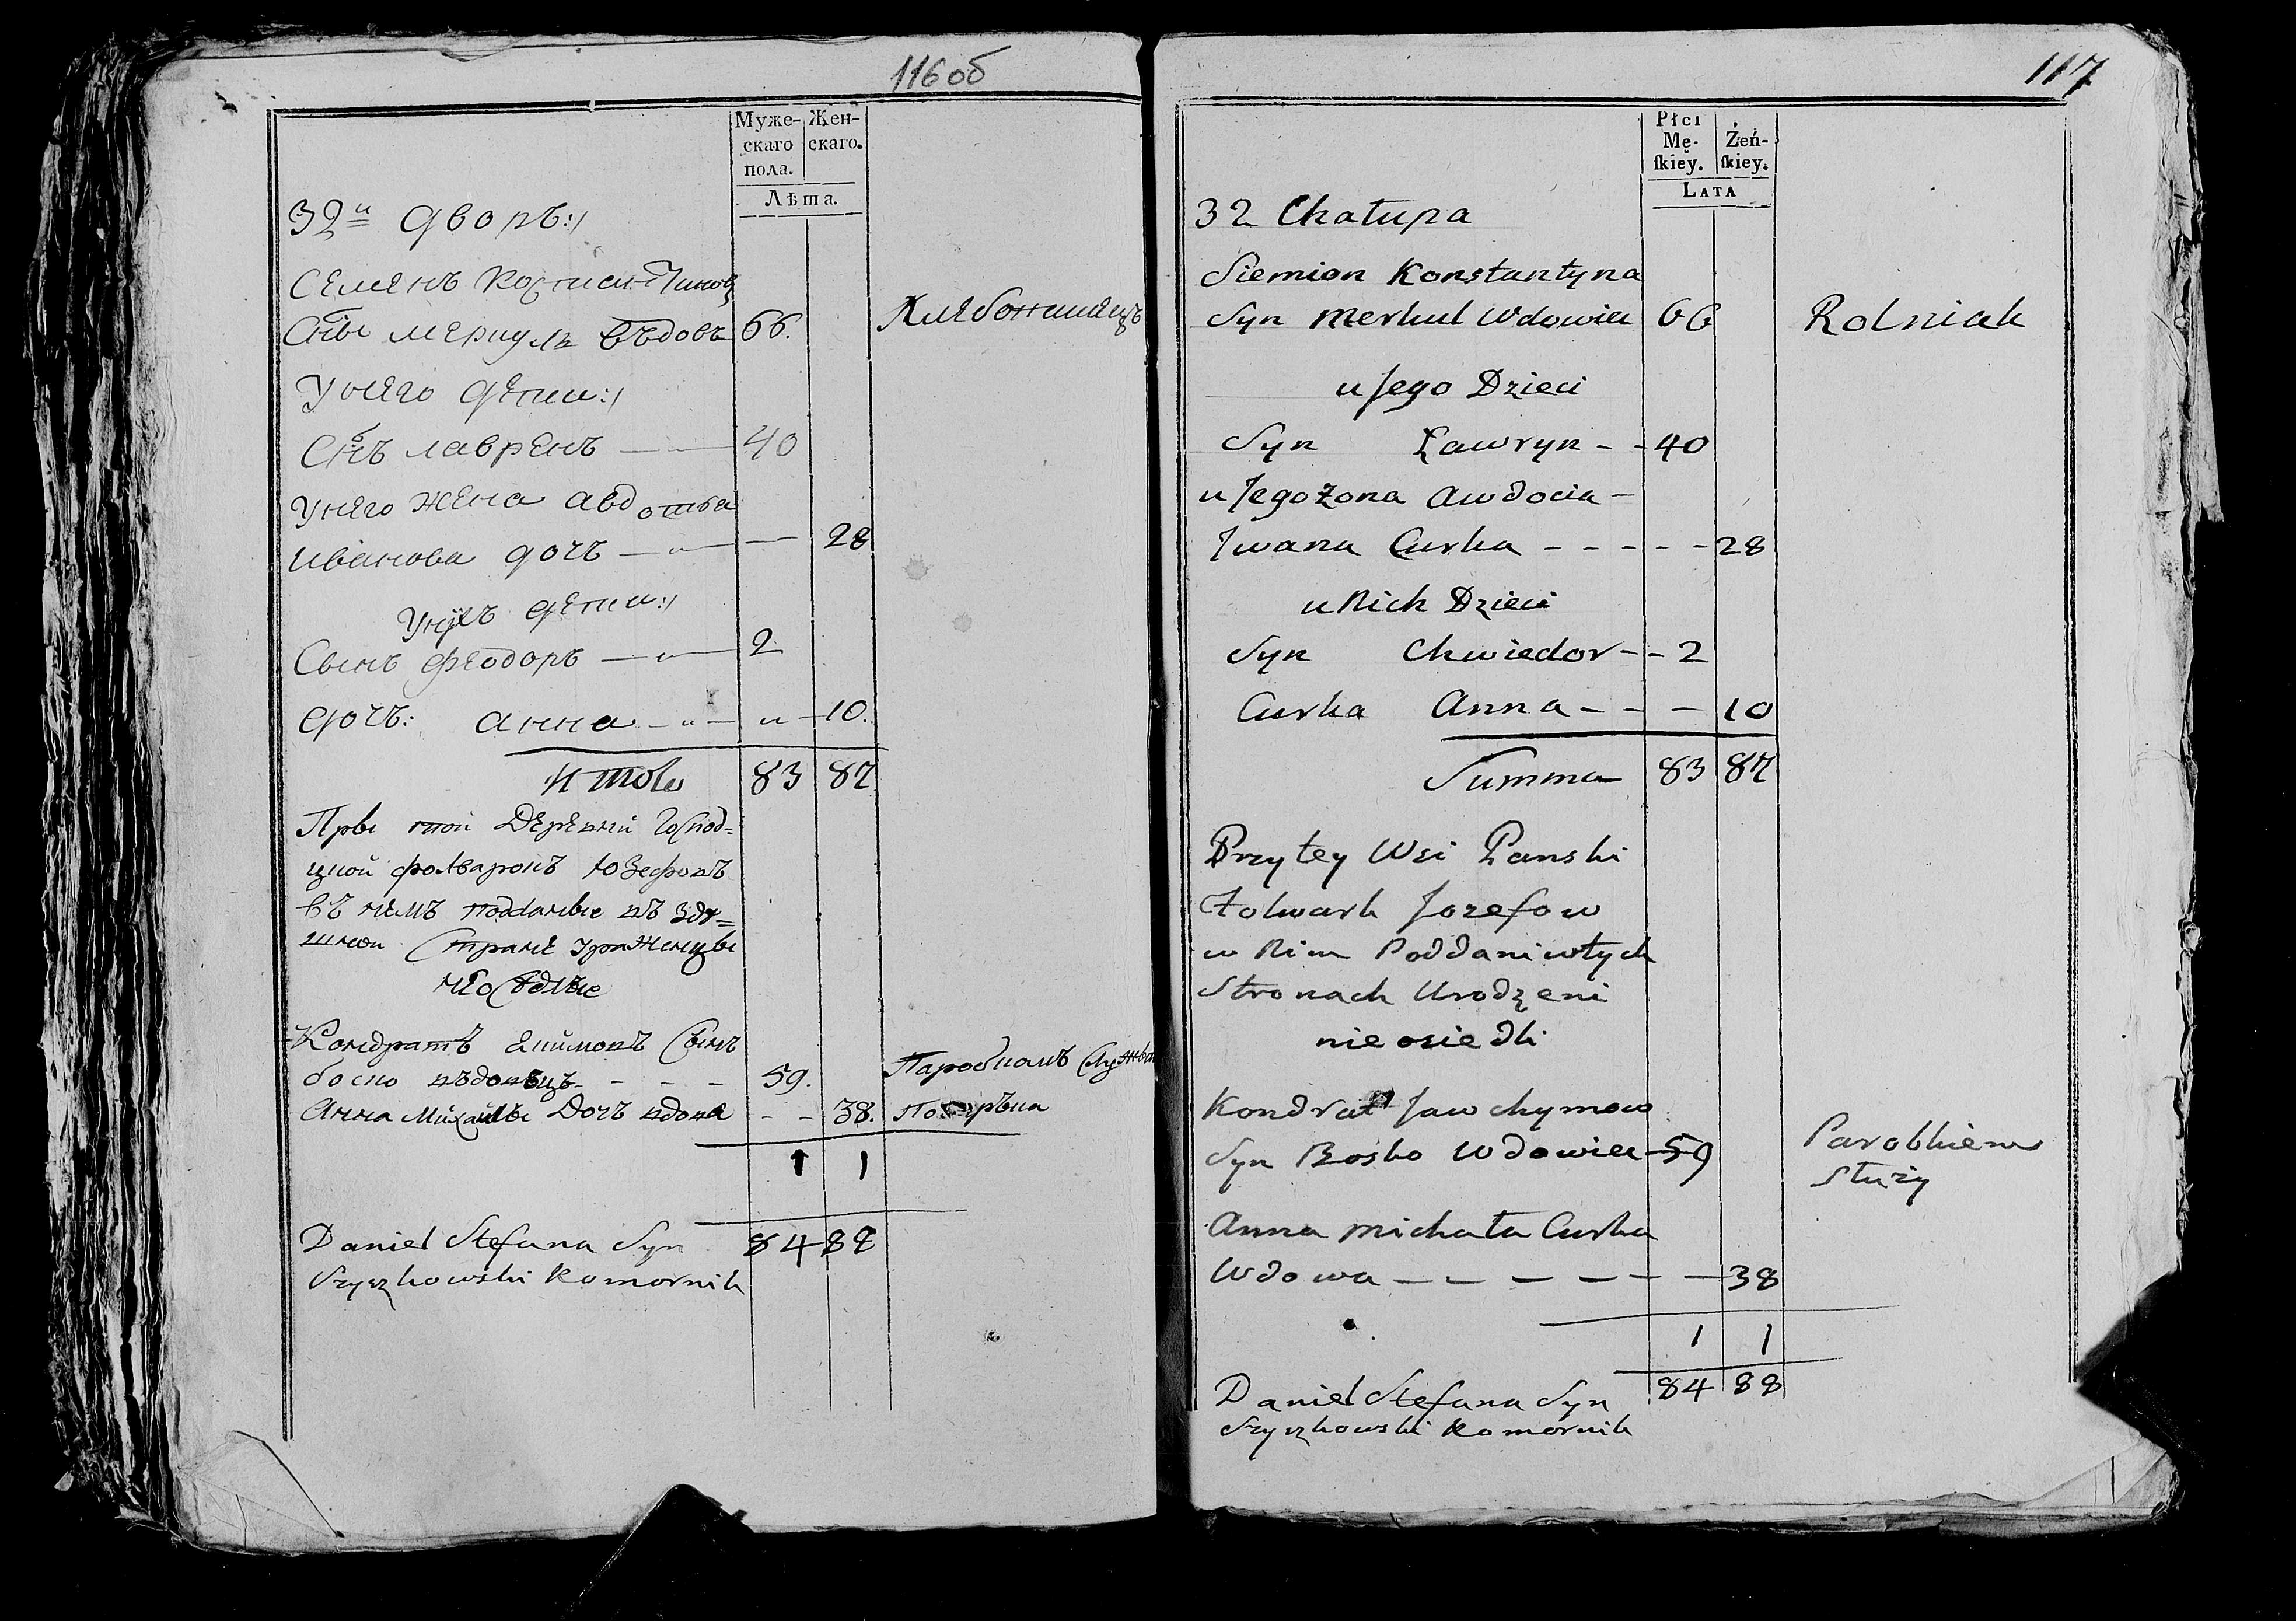 116об
Муже- Жен-
скаго скаго.
пола.
Лѣта.
32й дворъ:/
Семенъ Костентинов
Снъ меркуль въдовъ 66. Хлебопашецъ
У него дети:/
Снъ лавренъ 40
У него жена авдотья
иванова дочь 28
У них дети:/
Сынъ феодоръ 2
дочь: анна 10.
Итого 83 87
При той Деревни Господ=
цкой фолварокъ Юзефовъ
въ немъ подданые въ зде=
шной Стране уроженцы
неоседлые
Кондратъ Якимовъ Сынъ
боско въдовецъ 59. Паробкомъ Служи
Анна Михайлы Дочь вдова 38.
1 1
84 88
Daniel Stefana Syn
Szyszkowski Komornik
117
Płci
Mę- Żeń-
ſkiey. ſkiey.
Lata
32 Chałupa
Siemion Konstantyna
Syn Merkul Wdowiec 66 Rolniak
u Jego Dzieci
Syn Ławryn - - 40
u Jego Żona Awdocia -
Jwana Curka - - - - - 28
u Nich Dzieci
Syn Chwiedor - - 2
Curka Anna - - - 10
Summa 83 87
Przy tey Wsi Panski
Folwark Jozefow
w Nim Poddani w tych
Stronach Urodzeni
nie osiedli
Kondrat Jawchymow
Syn Bosko Wdowiec 59 Parobkiem
Służy
Anna Michała Curka
Wdowa - - - - - - 38
1 1
84 88
Daniel Stefana Syn
Szyszkowski Komornik